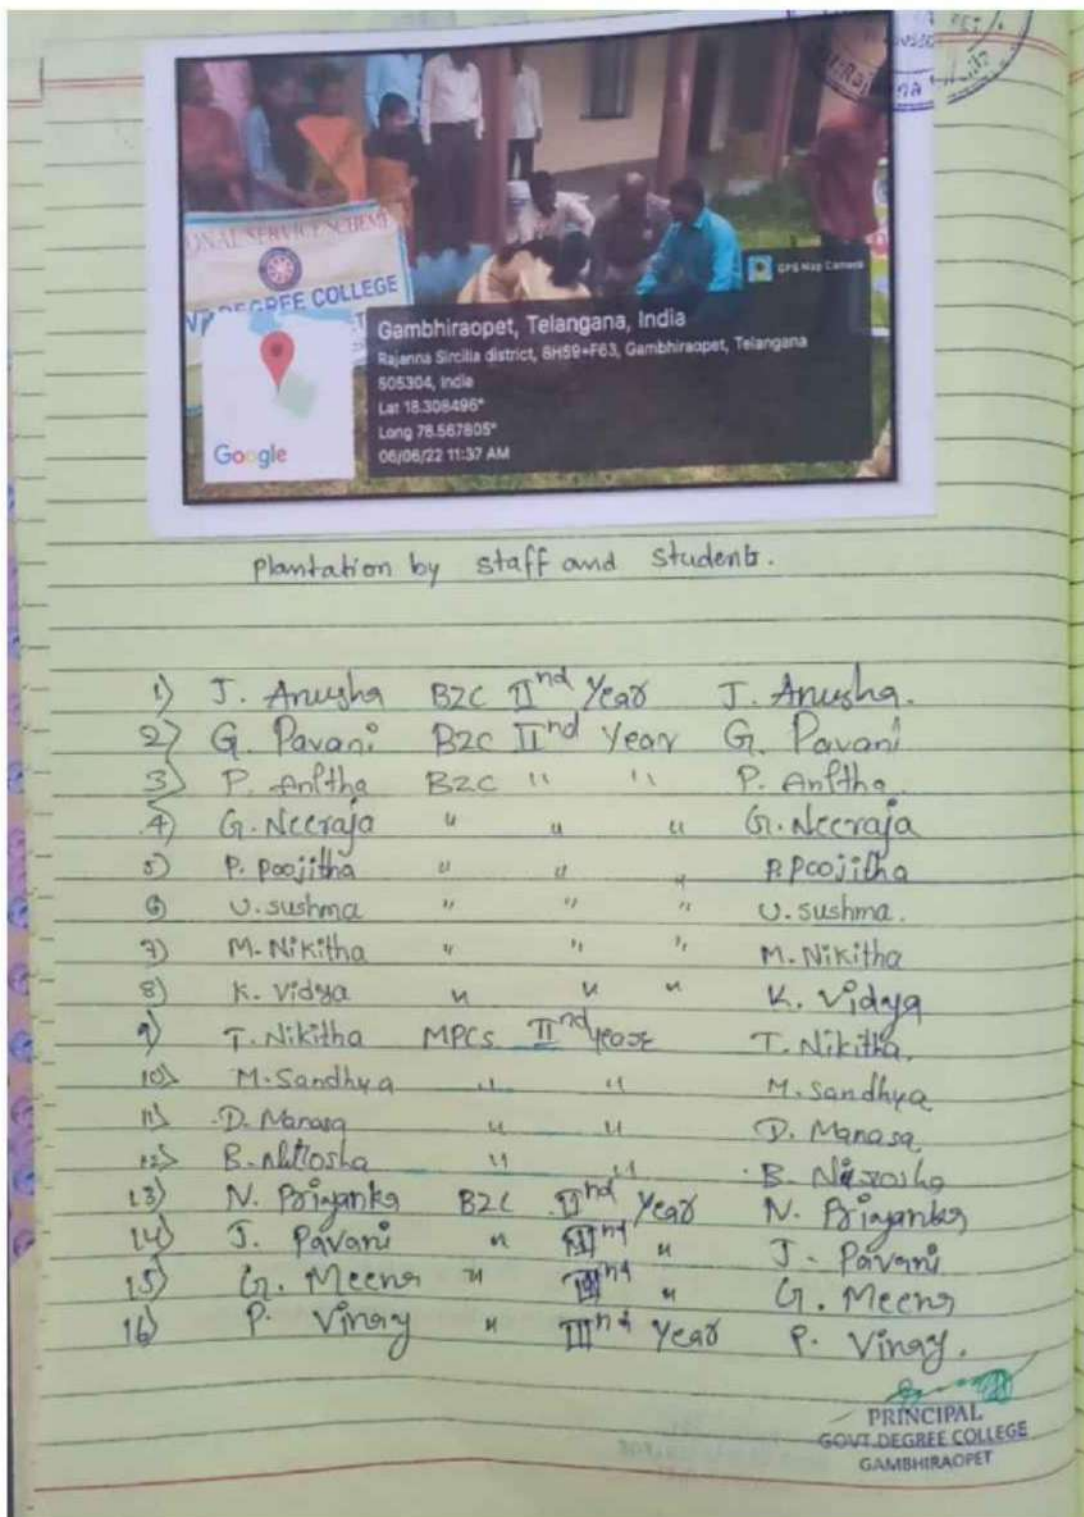 ONAL SERVICE SCHEME
DEGREE COLLEGE
GPS Map Camera
Gambhiraopet, Telangana, India
Rajanna Sircilla district, 8H59+F63, Gambhiraopet, Telangana
505304, India
Lat 18.308496°
Long 78.567805°
06/06/22 11:37 AM
Google
plantation by staff and students.
1) J. Anusha BZC IInd Year J. Anusha.
2) G. Pavani BZC IInd Year G. Pavani
3) P. Anitha BZC " " P. Anitha.
4) G. Neeraja " " " G. Neeraja
5) P. Poojitha " " " P. Poojitha
6) U. sushma " " " U. sushma.
7) M. Nikitha " " " M. Nikitha
8) K. Vidya " " " K. Vidya
9) T. Nikitha MPCs IInd year T. Nikitha.
10) M. Sandhya " " M. Sandhya
11) D. Manasa " " D. Manasa
12) B. " " B.
13) N. Priyanka BZC IInd Year N. Priyanka
14) J. Pavani " " J. Pavani
15) G. Meena " " G. Meena
16) P. Vinay " IIInd Year P. Vinay.
PRINCIPAL
GOVT.DEGREE COLLEGE
GAMBHIRAOPET